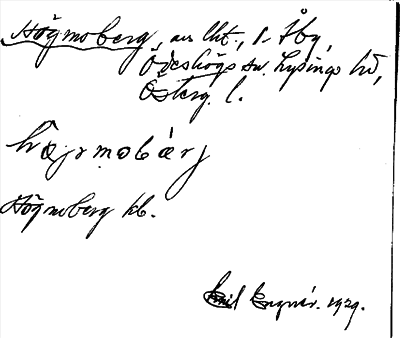 Högmoberg, au lht., i Åby,
Ödeshögs sn. Lysings hd,
Österg. l.
hæjrmobärj
Högmoberg kb.
Emil Engnér. 1929.